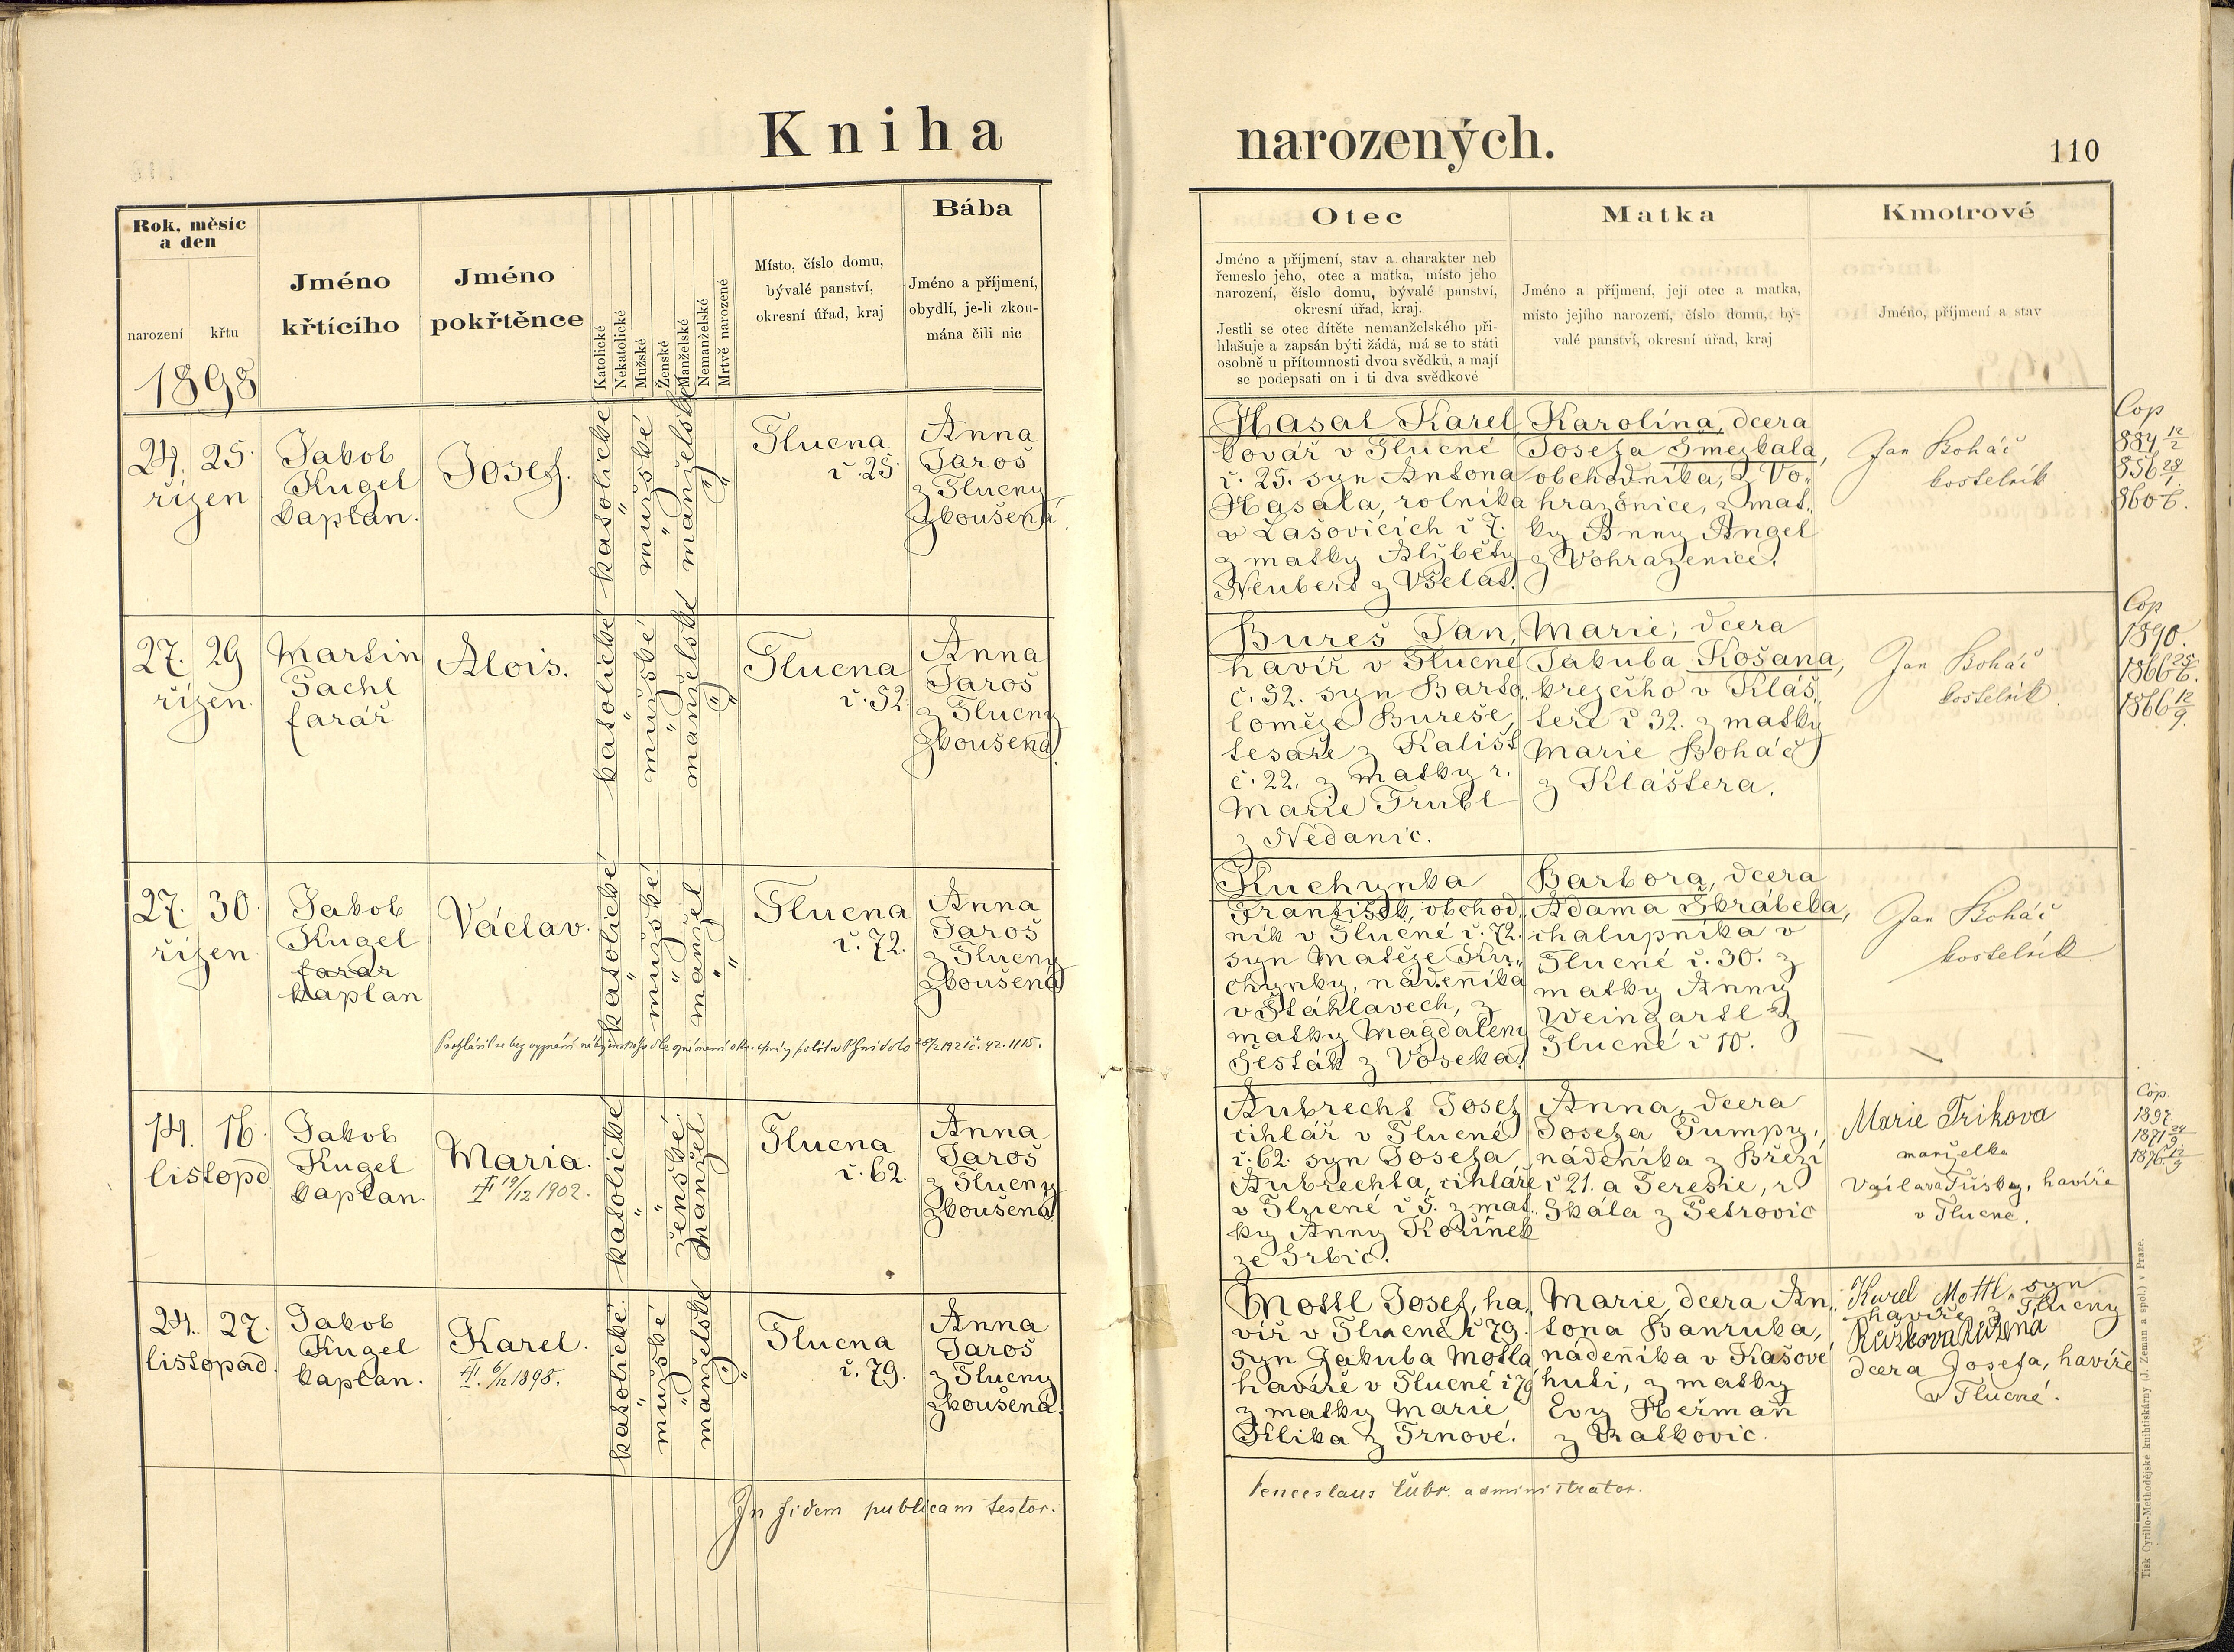 Kniha
narozených.
110
Rok, měsíc
a den
narození
křtu
Jméno
křtícího
Jméno
pokřtěnce
Katolické
Nekatolické
Mužské
Ženské
Manželské
Nemanželské
Mrtvě narozené
Místo, číslo domu,
bývalé panství,
okresní úřad, kraj
Bába
Jméno a příjmení,
obydlí, je-li zkou-
mána čili nic
Otec
Jméno a příjmení, stav a charakter neb
řemeslo jeho, otec a matka, místo jeho
narození, číslo domu, bývalé panství,
okresní úřad, kraj.
Jestli se otec dítěte nemanželského při-
hlašuje a zapsán býti žádá, má se to státi
osobně u přítomnosti dvou svědků, a mají
se podepsati on i ti dva svědkové
Matka
Jméno a příjmení, její otec a matka,
místo jejího narození, číslo domu, bý-
valé panství, okresní úřad, kraj
Kmotrové
Jméno, příjmení a stav
1898
24. 25.
říjen
Jakob
Kugel
kaplan.
Josef.
katolické
mužské
manželské
Tlucna
č 25.
Anna
Jaroš
z Tlucny
zkoušená.
Hasal Karel
kovář v Tlucné
č. 25. syn Antona
Hasala, rolníka
v Lašovicích č 7.
z matky Alžběty
Neubert z Všelat.
Karolína, dcera
Josefa Smejkala,
obchodníka, z Vo„
hrazenice, z mat„
ky Anny Angel
z Vohrazenice.
Jan Boháč
kostelník.
Cop
884 12/2
856 28/1.
860 6.
27. 29
říjen.
Martin
Pachl
farář
Alois.
katolické
mužské
manželské
Tlucna
č. 52.
Anna
Jaroš
z Tlucny
zkoušená.
Bureš Jan,
havíř v Tlucné
č. 52. syn Barto„
loměje Bureše,
tesaře z Kališt
č. 22. z matky r.
Marie Trubl
z Nedanic.
Marie, dcera
Jakuba Košana,
krejčího v Kláš„
teře č 32. z matky
Marie Boháč
z Kláštera.
Jan Boháč
kostelník.
Cop
1890.
1866 25/6.
1866 12/9.
27. 30.
říjen.
Jakob
Kugel
farář
kaplan
Václav.
katolické
mužské
manžel
Tlucna
č. 72.
Anna
Jaroš
z Tlucny
zkoušená
Kuchynka
František, obchod„
ník v Tlucné č. 72.
syn Matěje Ku„
chynky, nádeníka
v Štáhlavech, z
matky Magdaleny
Šesták z Voseka.
Barbora, dcera
Adama Skrábeka,
chalupníka v
Tlucné č. 30. z
matky Anny
Weingartl z
Tlucné č 10.
Jan Boháč
kostelník.
14. 16.
listopd
Jakob
Kugel
kaplan.
Maria.
19/12 1902.
katolické
ženské
manžel
Tlucna
č. 62.
Anna
Jaroš
z Tlucny
zkoušená.
Aubrecht Josef
cihlář v Tlucné
č. 62. syn Josefa
Aubrechta, cihláře
v Tlucné č 5. z mat„
ky Anny Kořínek
ze Srbic.
Anna, dcera
Josefa Pumpy,
nádeníka z Březí
č 21. a Teresie, r.
Skála z Petrovic
Marie Trikova
manželka
havíře
v Tlucné.
Cop.
1897
24. 27.
listopad.
Jakob
Kugel
kaplan.
Karel.
6/12 1898.
katolické
mužské
manželské
Tlucna
č. 79.
Anna
Jaroš
z Tlucny
zkoušená.
Mottl Josef, ha„
víř v Tlucné č 79.
syn Jakuba Motla
havíře v Tlucné č 79
z matky Marie
Klika z Trnové.
Marie, dcera An„
tona Hanzuka,
nádeníka v Kašové
huti, z matky
Evy Heřman
z Ratkovic.
Karel Mottl, syn
havíře z Tlucny
Růžena
dcera Josefa, havíře
v Tlucné.
In fidem publicam testor.
Venceslaus Lubr. administrator.
Tisk Cyrillo-Methodějské knihtiskárny (J. Zeman a spol.) v Praze.